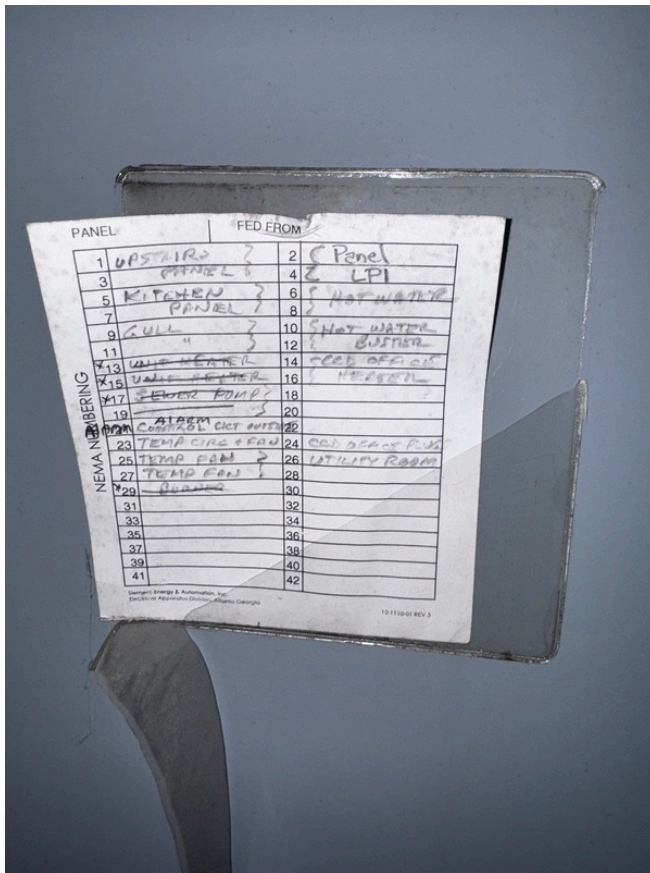 PANEL FED FROM
1 UPSTAIRS 2 Panel
3 PANEL 4 LP1
5 KITCHEN 6 HOT WATER
7 PANEL 8
9 GULL 10 HOT WATER
11 " 12 BUSTER
x13 UNIT HEATER 14 OFFICE
x15 UNIT HEATER 16 HEATER
x17 SEWER PUMP 18
19 20
ALARM CONTROL CKT 22
23 TEMP CIRC + FAN 24
25 TEMP FAN 26 UTILITY ROOM
27 TEMP FAN 28
x29 BURNER 30
31 32
33 34
35 36
37 38
39 40
41 42
NEMA NUMBERING
Siemens Energy & Automation, Inc.
Electrical Apparatus Division, Atlanta Georgia
REV 5